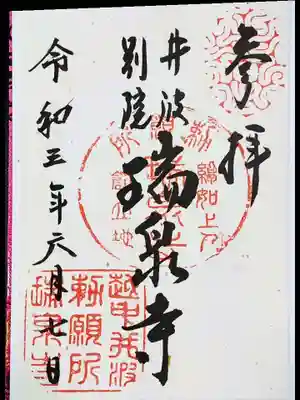 参拝
井波
別院
瑞泉寺
令和三年六月七日
越中井波
勅願所
瑞泉寺
綽如上人